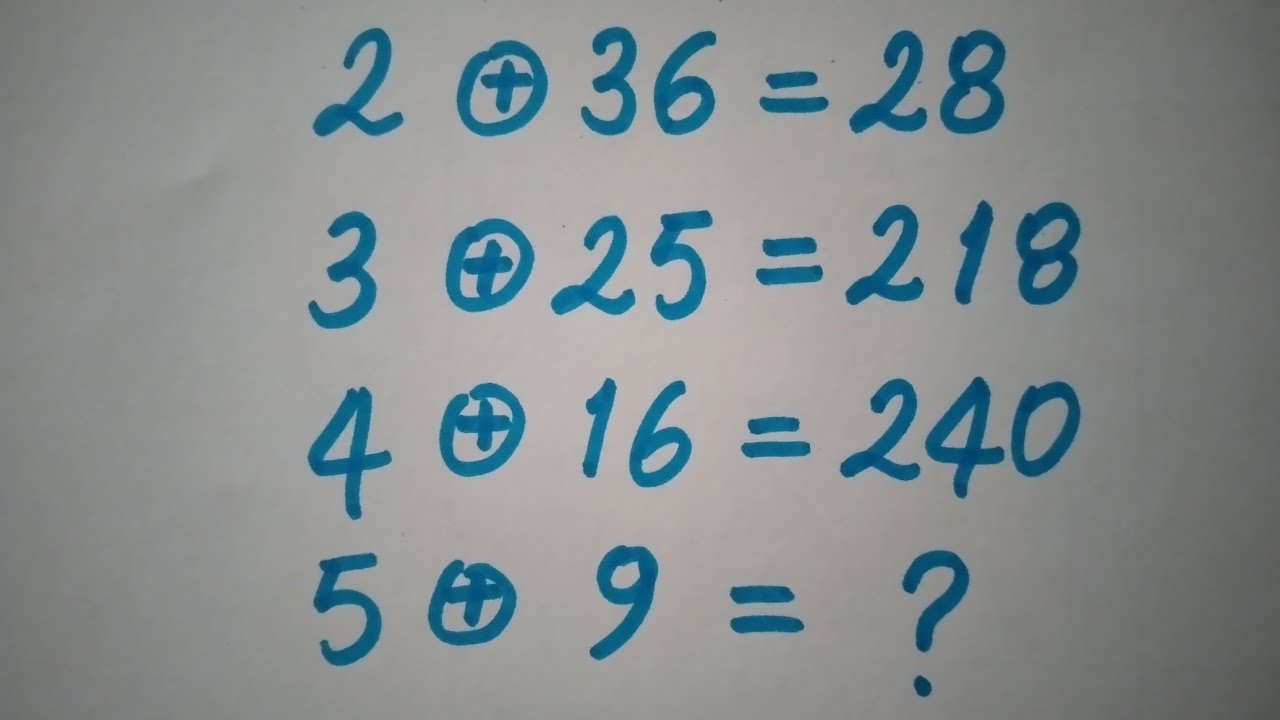 2 ⊕ 36 = 28
3 ⊕ 25 = 218
4 ⊕ 16 = 240
5 ⊕ 9 = ?